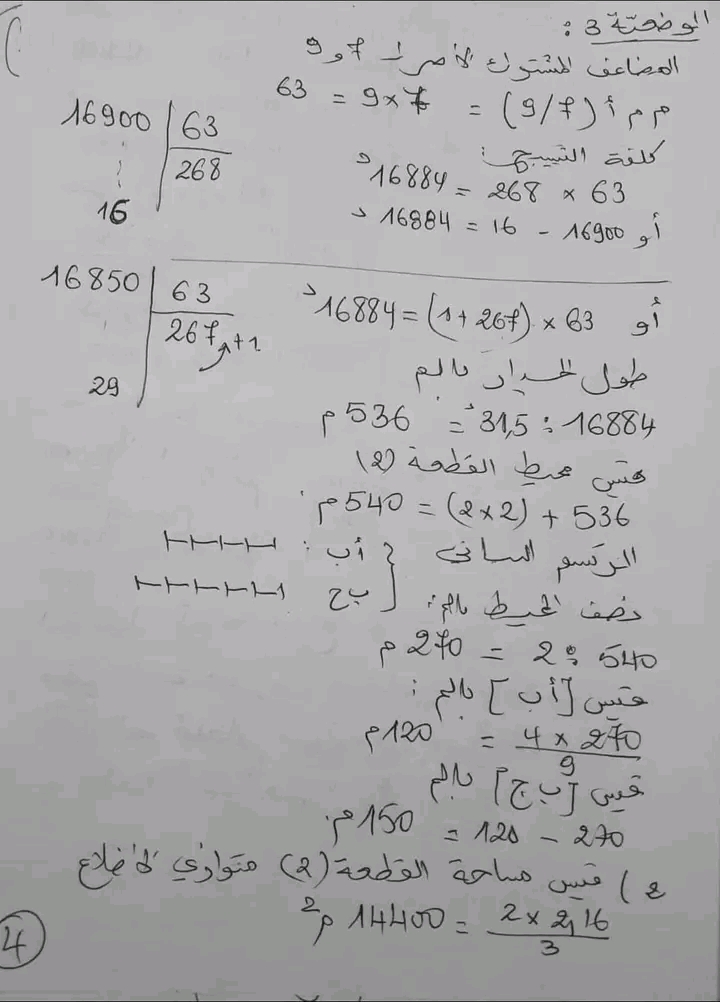 الوضعية 3 :
المضاعف المشترك الأصغر لـ 7 و 9
م م أ (9/7) = 9 × 7 = 63
16900 | 63
268
16
كلفة التسييج :
63 × 268 = 16884 د
أو 16900 - 16 = 16884 د
16850 | 63
267 +1
29
أو 63 × (267 + 1) = 16884 د
طول الجدار بالم
16884 : 31,5 = 536 م
قيس محيط القطعة (2)
536 + (2×2) = 540 م
الرسم البياني { أب :
ب ج
نصف المحيط بالم :
540 : 2 = 270 م
قيس [أب] بالم :
270 × 4 / 9 = 120 م
قيس [ب ج] بالم
270 - 120 = 150 م.
2) قيس مساحة القطعة (2) متوازي الأضلاع
2,16 × 2 / 3 = 14400 م2
4